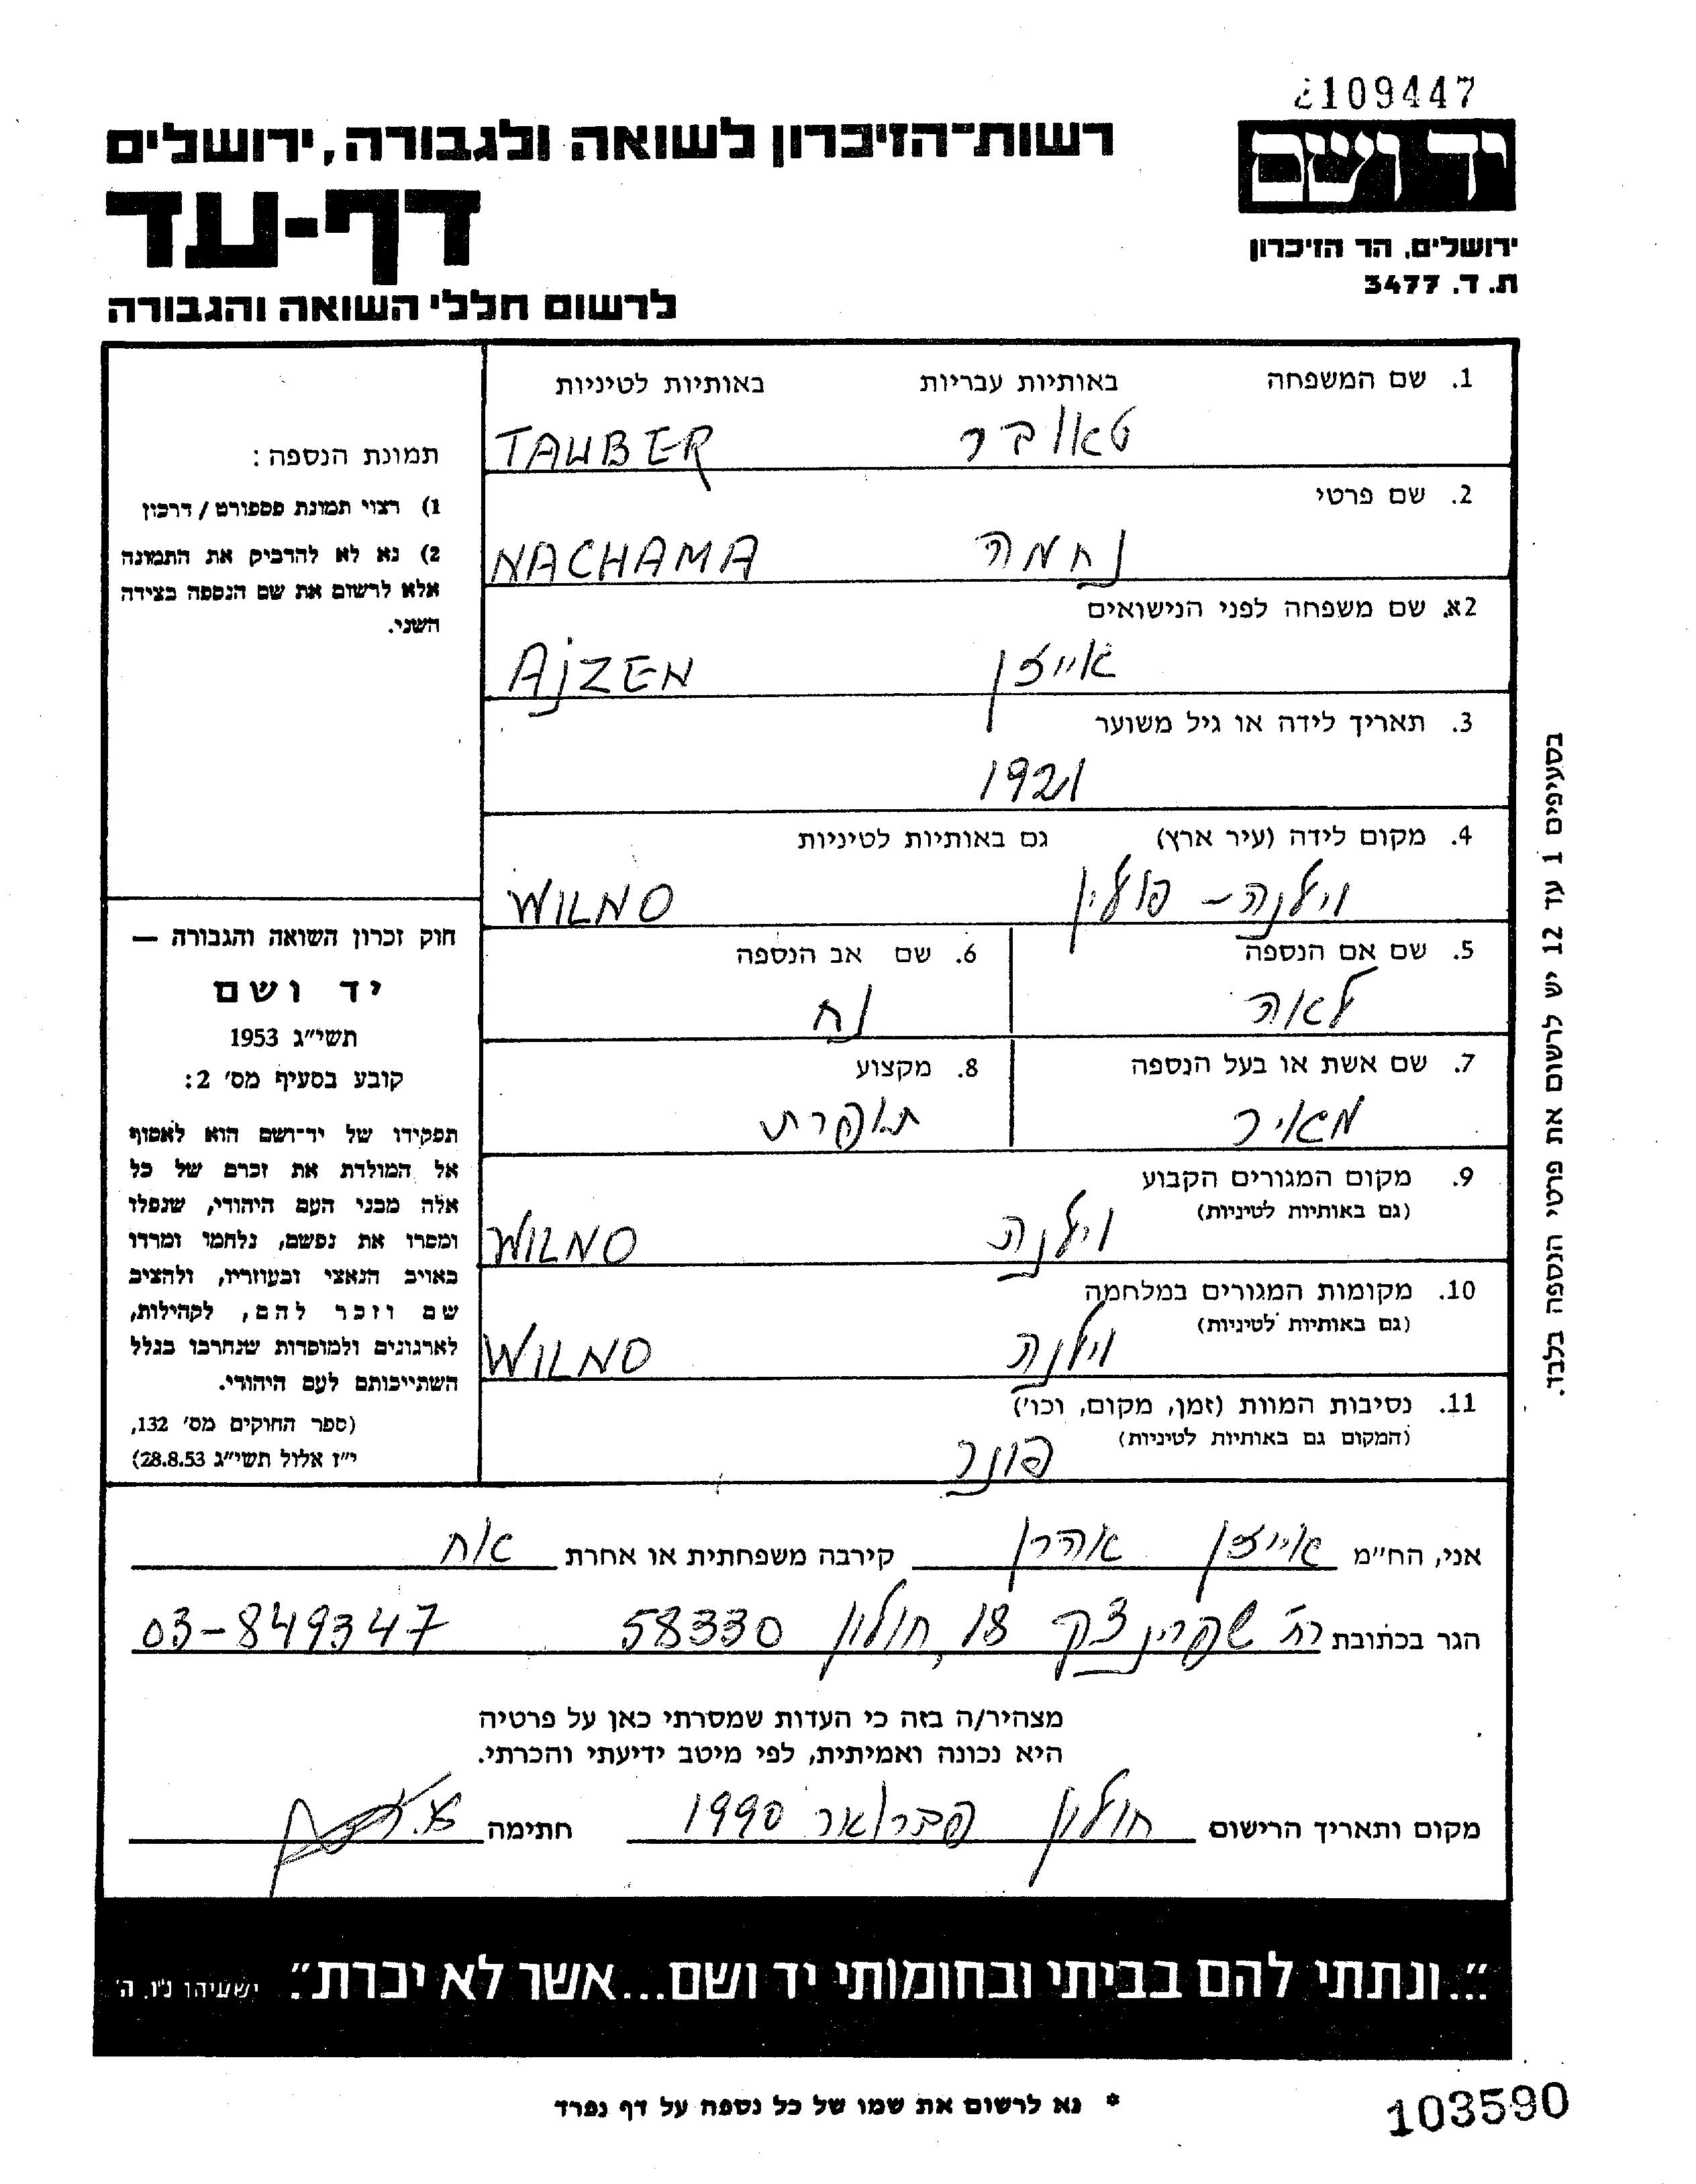 2109447
יד ושם
רשות־הזיכרון לשואה ולגבורה, ירושלים
דף-עד
ירושלים, הר הזיכרון
ת. ד. 3477
לרשום חללי השואה והגבורה
1. שם המשפחה באותיות עבריות באותיות לטיניות
טאובר TAUBER
2. שם פרטי
נחמה NACHAMA
2א. שם משפחה לפני הנישואים
אייזן AJZEN
3. תאריך לידה או גיל משוער
1921
4. מקום לידה (עיר ארץ) גם באותיות לטיניות
וילנה - פולין WILNO
5. שם אם הנספה 6. שם אב הנספה
לאה נח
7. שם אשת או בעל הנספה 8. מקצוע
מאיר תופרת
9. מקום המגורים הקבוע
(גם באותיות לטיניות)
וילנה WILNO
10. מקומות המגורים במלחמה
(גם באותיות לטיניות)
וילנה WILNO
11. נסיבות המוות (זמן, מקום, וכו')
(המקום גם באותיות לטיניות)
פונר
תמונת הנספה :
1) רצוי תמונת פספורט / דרכון
2) נא לא להדביק את התמונה
אלא לרשום את שם הנספה בצידה
השני.
חוק זכרון השואה והגבורה —
יד ושם
תשי״ג 1953
קובע בסעיף מס׳ 2:
תפקידו של יד־ושם הוא לאסוף
אל המולדת את זכרם של כל
אלה מבני העם היהודי, שנפלו
ומסרו את נפשם, נלחמו ומרדו
באויב הנאצי ובעוזריו, ולהציב
שם וזכר להם, לקהילות,
לארגונים ולמוסדות שנחרבו בגלל
השתייכותם לעם היהודי.
(ספר החוקים מס׳ 132,
י״ז אלול תשי״ג 28.8.53)
בסעיפים 1 עד 12 יש לרשום את פרטי הנספה בלבד.
אני, הח״מ אייזן אהרן קירבה משפחתית או אחרת אח
הגר בכתובת רח' שפרינצק 18, חולון 58330 03-849347
מצהיר/ה בזה כי העדות שמסרתי כאן על פרטיה
היא נכונה ואמיתית, לפי מיטב ידיעתי והכרתי.
מקום ותאריך הרישום חולון פברואר 1990 חתימה
״...ונתתי להם בביתי ובחומותי יד ושם...אשר לא יכרת״. ישעיהו נ״ו, ה'
* נא לרשום את שמו של כל נספה על דף נפרד
103590